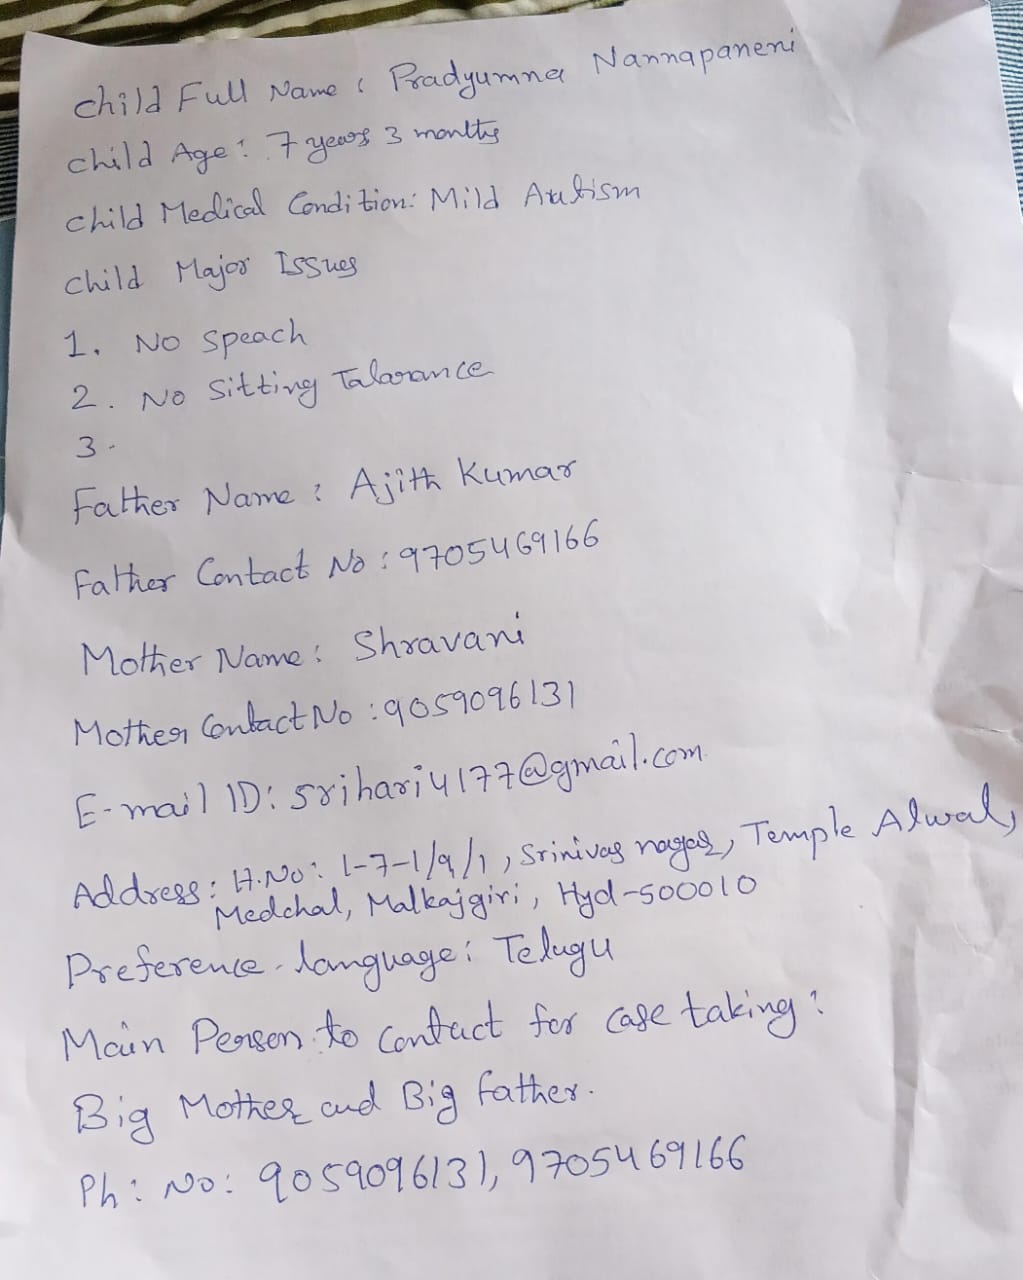 Child Full Name : Pradyumna Nannapaneni
Child Age : 7 years 3 months
Child Medical Condition: Mild Autism
Child Major Issues
1. No Speach
2. No Sitting Talarance
3.
Father Name : Ajith Kumar
Father Contact No : 9705469166
Mother Name : Shravani
Mother Contact No : 9059096131
E-mail ID: srihari4177@gmail.com
Address : H.No : 1-7-1/9/1, Srinivas nagar, Temple Alwal,
Medchal, Malkajgiri, Hyd-500010
Preference language : Telugu
Main Person to contact for case taking :
Big Mother and Big father.
Ph : No : 9059096131, 9705469166